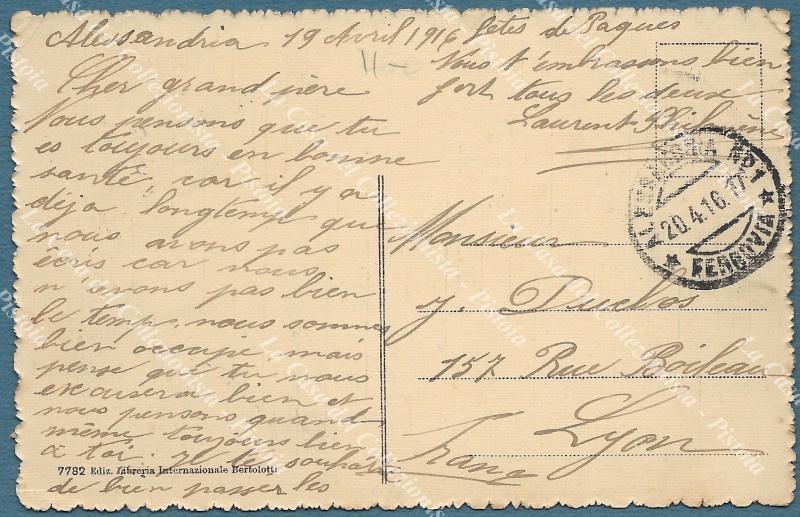 Alessandria 19 Avril 1916
Cher grand père
Nous pensons que tu
es toujours en bonne
santé, car il y a
déja longtemp que
nous avons pas
ecris car nous
n'avons pas bien
le temp. nous sommes
bien occupé mais
pense que tu nous
excusera bien et
nous pensons quand
même toujours bien
à toi. Je te
de bien passer les
fêtes de Paques
Nous t'embrassons bien
fort tous les deux
Laurent
Monsieur
J. Duclos
157 Rue Boileau
Lyon
ALESSANDRIA No 1
20.4.16.17
★ FERROVIA ★
7782 Ediz. Libreria Internazionale Bertolotti
La Casa del Collezionista - Pistoia